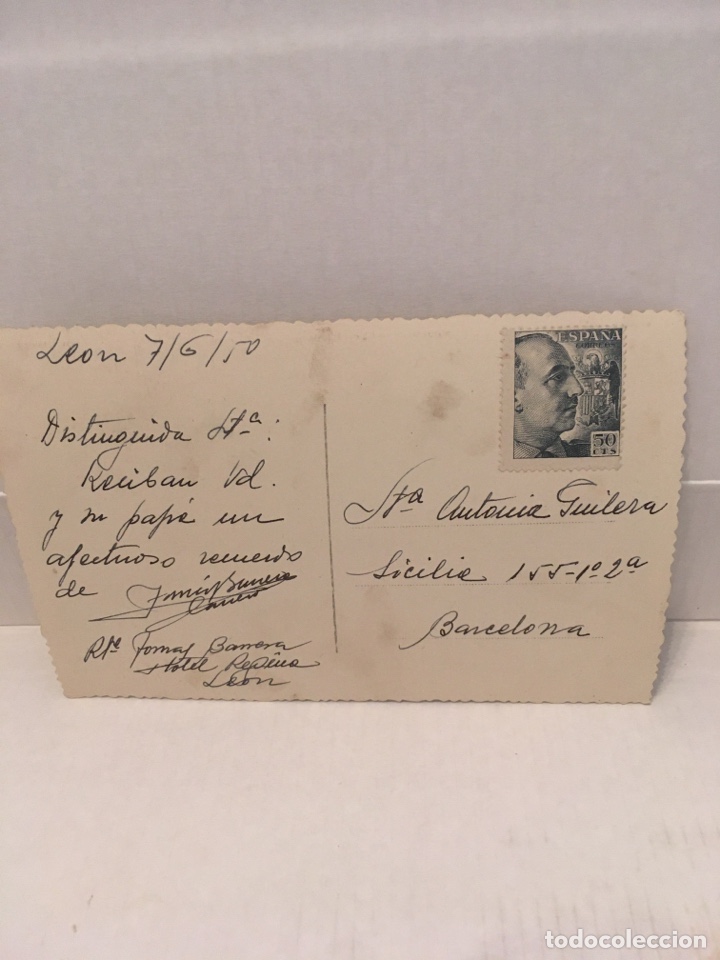 Leon 7/6/50
Distinguida Sta:
Reciban Vd.
y su papá un
afectuoso recuerdo
de
Rte Tomas Barrera
Hotel Regina
Leon
ESPAÑA
CORREOS
50
CTS
Sta Antonia Guilera
Sicilia 155-1º 2ª
Barcelona
todocoleccion
todocoleccion.net